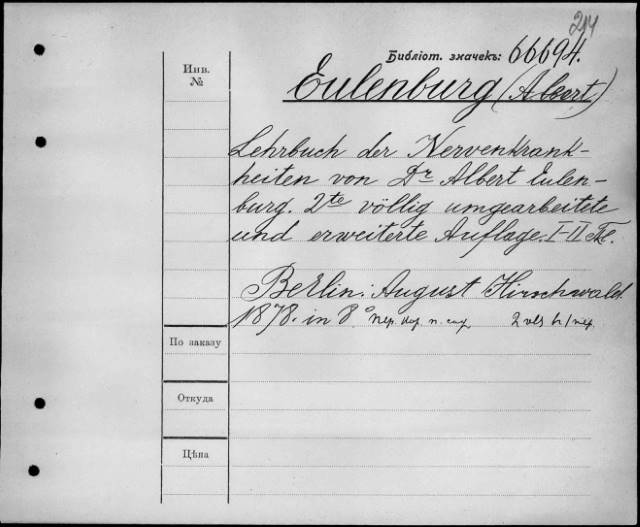 214
Библіот. значекъ: 66694.
Инв.
№
Eulenburg (Albert)
Lehrbuch der Nervenkrank-
heiten von Dr Albert Eulen-
burg. 2te völlig umgearbeitete
und erweiterte Auflage. I-II Th.
Berlin: August Hirschwald.
1878. in 8° пер. кор. 2 vls
По заказу
Откуда
Цѣна